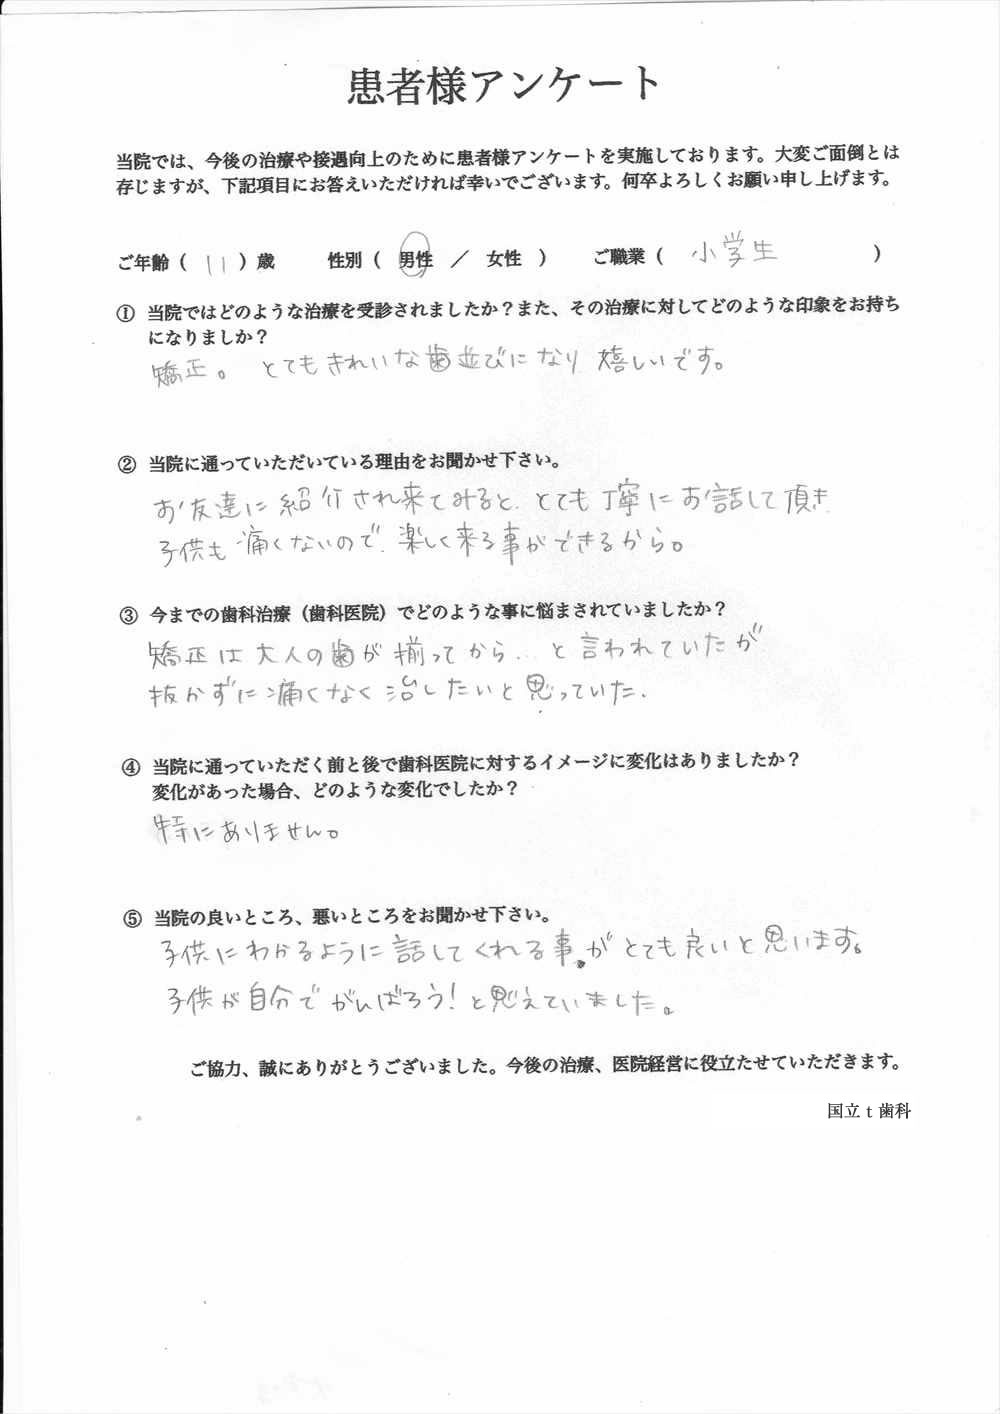 患者様アンケート
当院では、今後の治療や接遇向上のために患者様アンケートを実施しております。大変ご面倒とは
存じますが、下記項目にお答えいただければ幸いでございます。何卒よろしくお願い申し上げます。
ご年齢（ 11 ）歳 性別（ 男性 ／ 女性 ） ご職業（ 小学生 ）
① 当院ではどのような治療を受診されましたか？また、その治療に対してどのような印象をお持ち
になりましか？
矯正。 とてもきれいな歯並びになり 嬉しいです。
② 当院に通っていただいている理由をお聞かせ下さい。
お友達に紹介され来てみると、とても丁寧にお話して頂き
子供も痛くないので、楽しく来る事ができるから。
③ 今までの歯科治療（歯科医院）でどのような事に悩まされていましたか？
矯正は大人の歯が揃ってから…と言われていたが
抜かずに痛くなく治したいと思っていた。
④ 当院に通っていただく前と後で歯科医院に対するイメージに変化はありましたか？
変化があった場合、どのような変化でしたか？
特にありません。
⑤ 当院の良いところ、悪いところをお聞かせ下さい。
子供にわかるように話してくれる事がとても良いと思います。
子供が自分でがんばろう！と思えていました。
ご協力、誠にありがとうございました。今後の治療、医院経営に役立たせていただきます。
国立 t 歯科